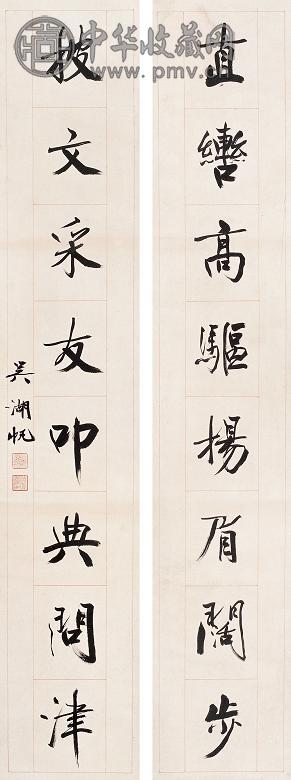 中华收藏网
www.pmv.cn
直轡高驅揚眉闊步
披文采友叩典問津
吳湖帆